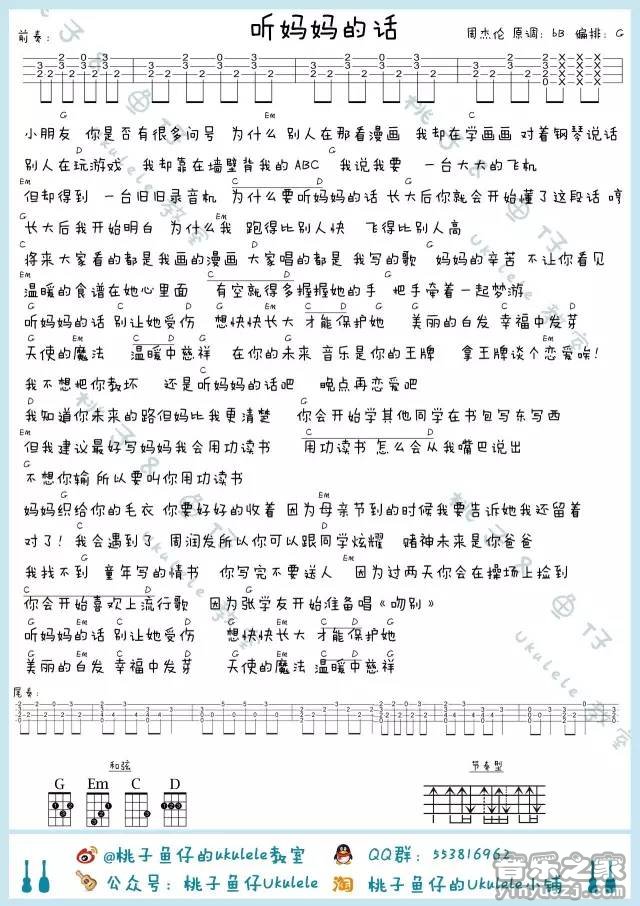 听妈妈的话
前奏: 周杰伦 原调: bB 编排: G
G Em C
小朋友 你是否有很多问号 为什么 别人在那看漫画 我却在学画画 对着钢琴说话
D G
别人在玩游戏 我却靠在墙壁背我的ABC 我说我要 一台大大的飞机
Em C D G
但却得到 一台旧旧录音机 为什么要听妈妈的话 长大后你就会开始懂了这段话 哼
G Em
长大后我开始明白 为什么我 跑得比别人快 飞得比别人高
C D G
将来大家看的都是我画的漫画 大家唱的都是 我写的歌 妈妈的辛苦 不让你看见
Em C D G
温暖的食谱在她心里面 有空就得多握握她的手 把手牵着一起梦游
G Em C D G
听妈妈的话 别让她受伤 想快快长大 才能保护她 美丽的白发 幸福中发芽
天使的魔法 温暖中慈祥 在你的未来 音乐是你的王牌 拿王牌谈个恋爱唉!
我不想把你教坏 还是听妈妈的话吧 晚点再恋爱吧
D G
我知道你未来的路但妈比我更清楚 你会开始学其他同学在书包写东写西
Em C D
但我建议最好写妈妈我会用功读书 用功读书 怎么会从我嘴巴说出
G
不想你输 所以要叫你用功读书
G Em
妈妈织给你的毛衣 你要好好的收着 因为母亲节到的时候我要告诉她我还留着
C D G
对了! 我会遇到了 周润发所以你可以跟同学炫耀 赌神未来是你爸爸
G Em
我找不到 童年写的情书 你写完不要送人 因为过两天你会在操场上捡到
C D G
你会开始喜欢上流行歌 因为张学友开始准备唱《吻别》
G Em C D
听妈妈的话 别让她受伤 想快快长大 才能保护她
G Em C D G
美丽的白发 幸福中发芽 天使的魔法 温暖中慈祥
尾奏:
和弦 节奏型
G Em C D
@桃子鱼仔的ukulele教室 QQ群: 553816962
公众号: 桃子鱼仔Ukulele 淘 桃子鱼仔的Ukulele小铺
音乐之家
yinyuezj.com